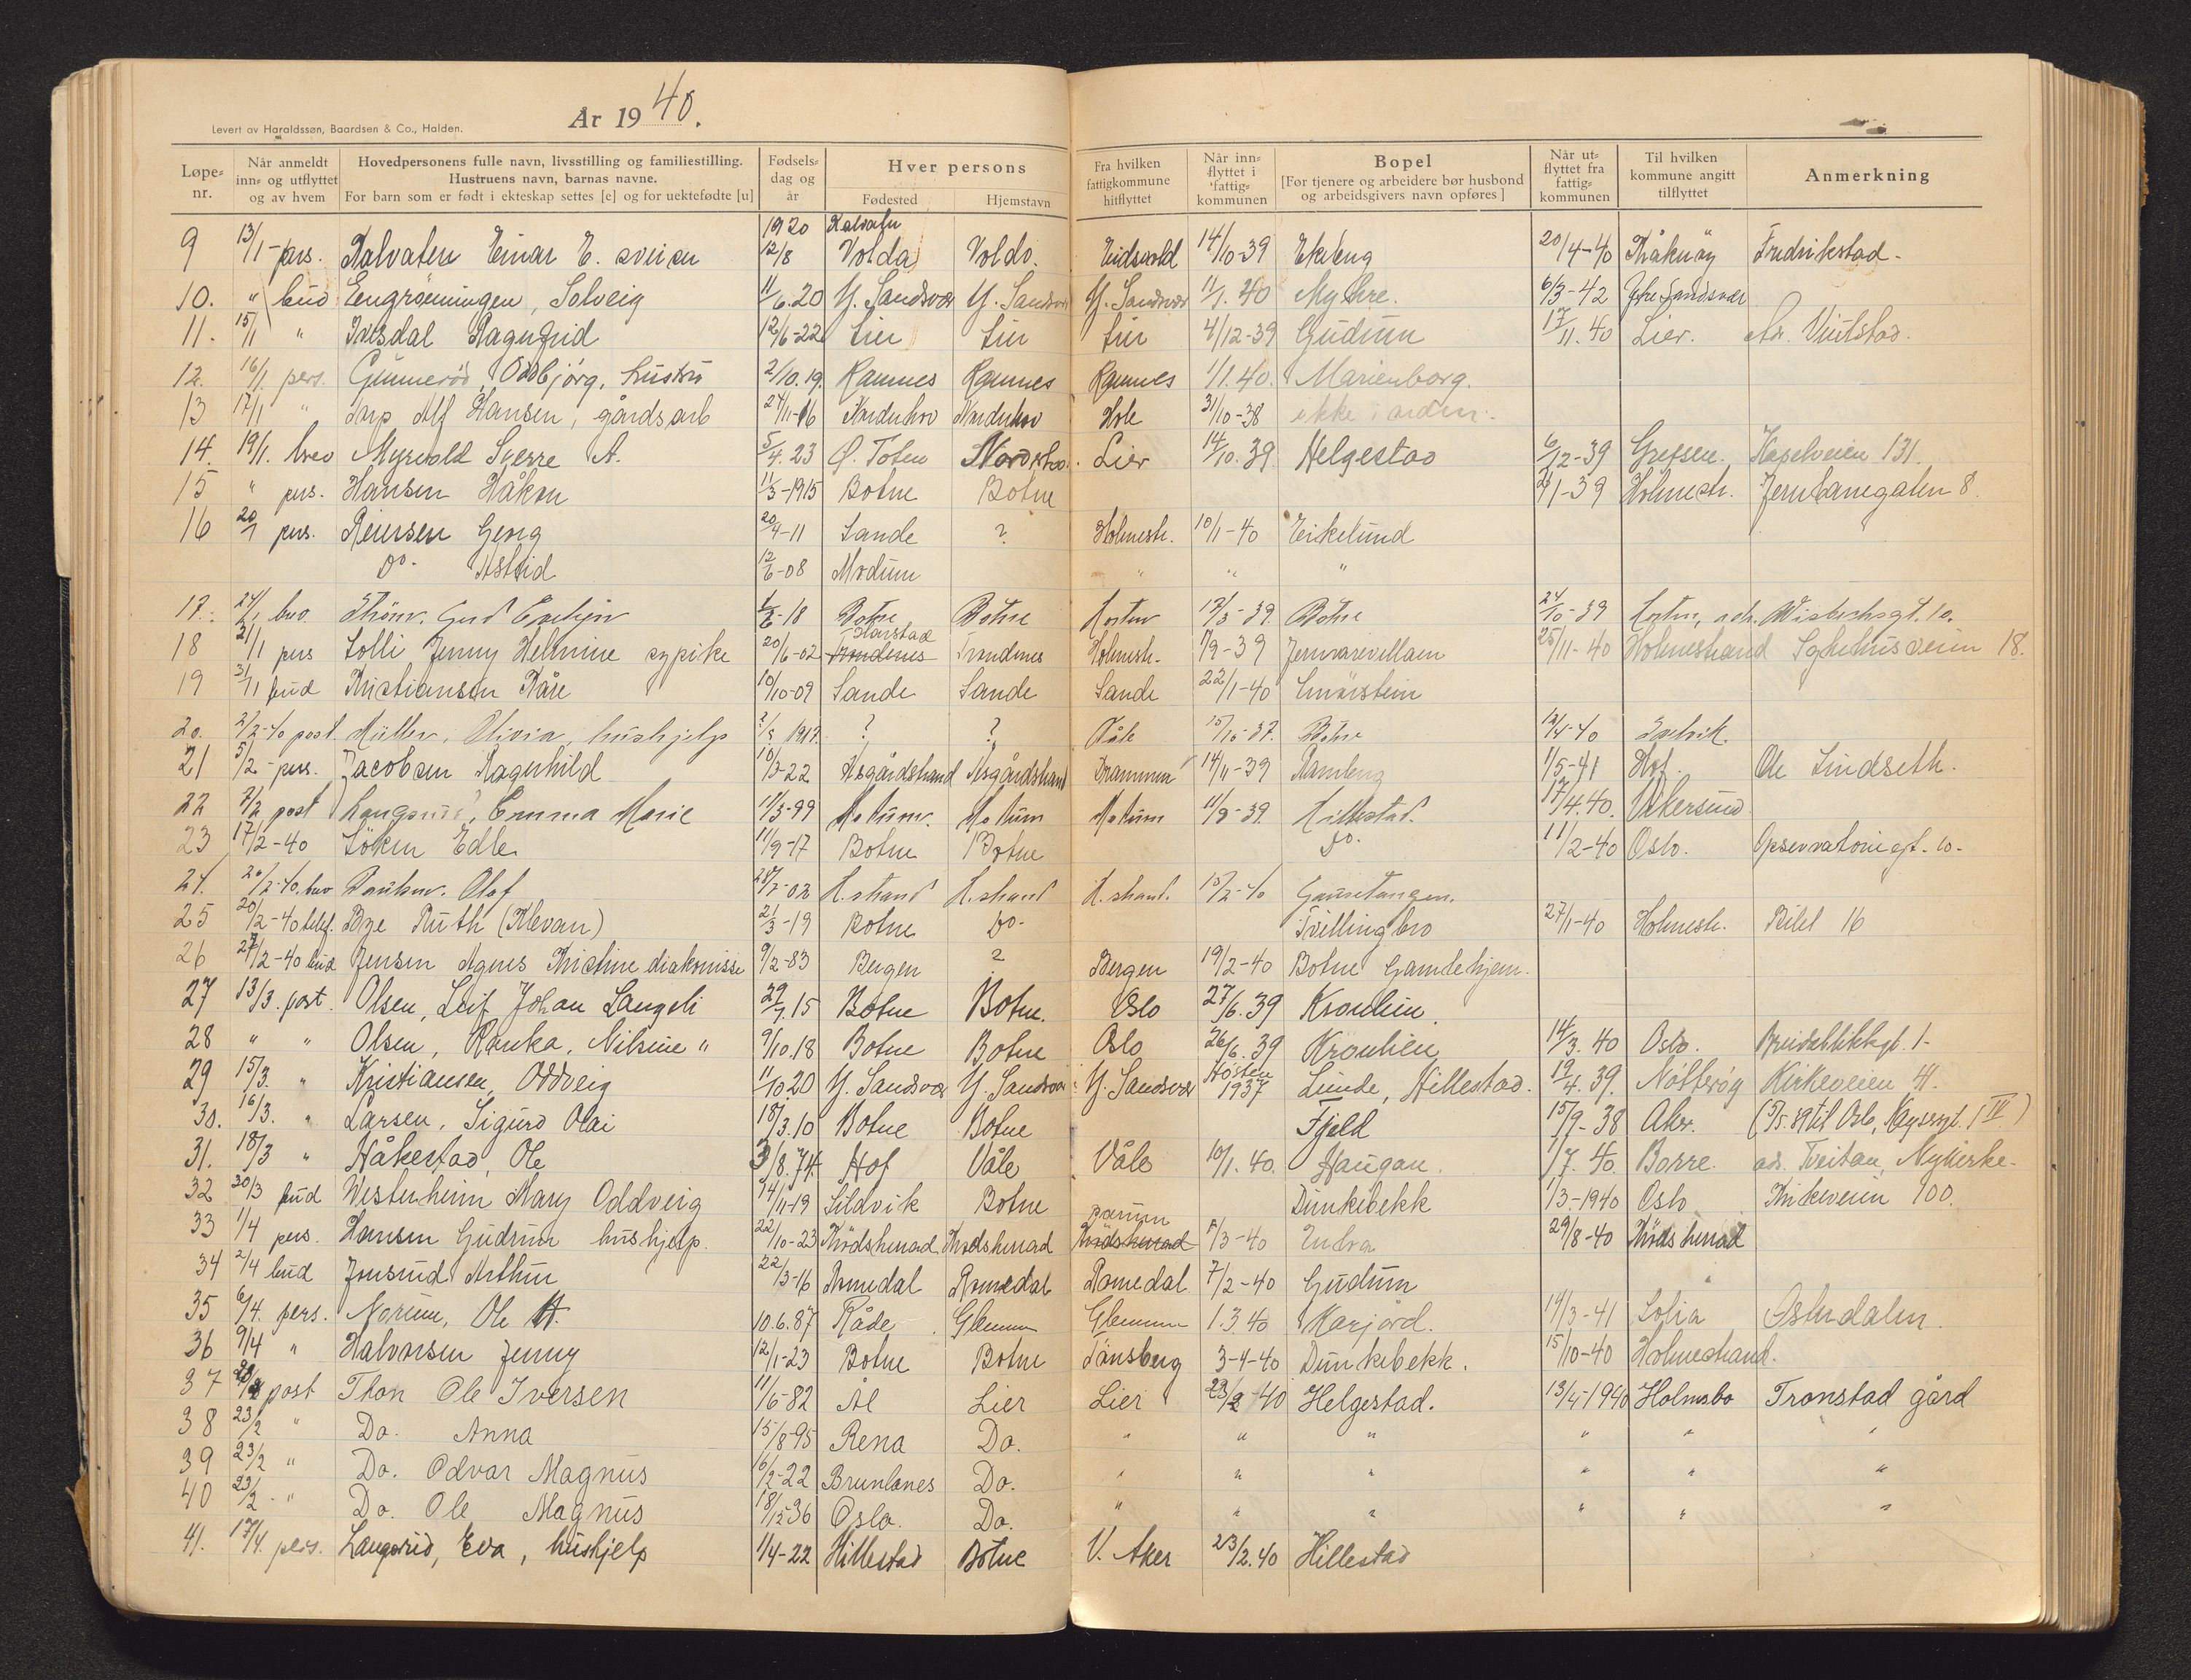 År 1940.
Levert av Haraldssøn, Baardsen & Co., Halden.
Løpe-nr. Når anmeldt inn- og utflyttet og av hvem Hovedpersonens fulle navn, livsstilling og familiestilling. Hustruens navn, barnas navne. For barn som er født i ekteskap settes [e] og for uektefødte [u] Fødsels-dag og år Hver persons Fødested Hjemstavn Fra hvilken fattigkommune hitflyttet Når inn-flyttet i fattig-kommunen Bopel [For tjenere og arbeidere bør husbond og arbeidsgivers navn opføres] Når ut-flyttet fra fattig-kommunen Til hvilken kommune angitt tilflyttet Anmerkning
1920 Kalvatn
9 13/1- pers. Kalvatn Einar E. sveiser 12/8 Volda Volda. Eidsvold 14/10-39 Ekeberg 20/4-40 Kråkerøy Fredrikstad.
10. " bud Engrønningen, Solveig 11/6.20 Y. Sandsvær Y. Sandsvær Y. Sandsvær 11/1.40 Myhre. 6/3-42 Ytre Sandsvær
11. 15/1 " Ivesdal Ragnfrid 12/6-22 Lier Lier Lier 4/12-39 Gudum 17/11.40 Lier.
12. 16/1 pers. Gunnerød, Oddbjørg, hustru 2/10.19 Ramnes Ramnes Ramnes 1/1.40. Marienborg.
13 17/1 " Alf Hansen, gårdsarb 24/11-16 Norderhov Norderhov Hole 31/10-38 ikke i orden.
14. 19/1. brev Myrvold Sverre A. 5/4.23 Ø. Toten Nordrehov. Lier 14/10.39 Helgestad 6/12-39 Grefsen. Kapelveien 131.
15 " pers. Hansen Håkon 11/3-1915 Botne Botne 1-39 Holmestr. Jernbanegaten 8.
16 20/1 pers. Reiersen Georg 20/4-11 Sande ? Holmestr. 10/1-40 Eikelund
Do. Astrid 12/6-08 Modum " " "
17. 24/1 brev. Gerd Evelyn 1/6-18 Botne Botne Horten 12/3-39. Botne 24/10-39 Horten, adr. 10.
Harstad
18 31/1 pers Solli Jenny Helmine sypike 20/6-02 Trondenes Trondenes Holmestr. 7/9-39 Jernvarevillaen 25/11-40 Holmestrand Sykehusveien 18.
19 31/1 bud Kristiansen Kåre 10/10-09 Sande Sande Sande 22/1-40 Smørstein
20. 2/2-40 post. Müller, Olivia, hushjelp 1917. ? ? Våle 15/10-37. Botne 12/4-40
21 5/2- pers. Jacobsen Ragnhild 10/3-22 Åsgårdstrand Åsgårdstrand Drammen 14/11-39 Ramberg 1/5-41 Hof. Ole Lindseth.
22 7/2 post Langsrud, Emma Marie 11/3-99 Modum. Modum Modum 11/9-39. Hillestad. 17/4.40. Vikersund
23 17/2-40 Søken Edle 11/9-17 Botne Botne Do. 11/2-40 Oslo. Opservatoriegt. 10.
24. 20/2-40. brev Olaf 28/7-02 H.strand H.strand H.strand. 15/2-40 Gausetangen.
25 20/2-40 telef. Bye Ruth (Klevan) 21/3-19 Botne Do. Tvillingbro 27/1-40 Holmestr. 16
26 27/2-40 bud Jensen Agnes Kristine diakonisse 9/2-83 Bergen ? Bergen 19/2-40 Botne Gamlehjem.
27 13/3. post. Olsen, Leif Johan Langeli 29/7.15 Botne Botne. Oslo 27/6.39 Kronlien.
28 " " Olsen, Ranka, Nilsine " 9/10.18 Botne Botne Oslo 26/6.39 Kronlien 14/3.40 Oslo. Breidablikkgt. 1.
29 15/3. " Kristiansen, Oddveig 11/10.20 Y. Sandsvær Y. Sandsvær Y. Sandsvær Høsten 1937 Lunde, Hillestad. 19/4.39. Nøtterøy Kirkeveien 41.
30. 16/3. " Larsen, Sigurd Olai 18/3.10 Botne Botne Fjeld 15/9-38 Aker. (7/5.39 til Oslo, IV)
31. 18/3 " Håkestad, Ole 3/8.74. Hof Våle Våle 10/1.40. Haugan. 1/7.40. Borre. ad. Tveitan, Nykirke.
32 30/3 bud Westerheim Mary Oddveig 14/11-19 Sildvik Botne Dunkebekk 1/3-1940 Oslo Kirkeveien 100.
33 1/4 pers. Hansen Gudrun hushjelp. 22/10-23 Krødsherad Krødsherad Bærum Krødsherad 1/3-40 Endra 29/8-40 Krødsherad
34 2/4 bud Jonsrud Arthur 22/3-16 Romedal Romedal Romedal 7/2-40 Gudum
35 6/4. pers. Norum, Ole H. 10.6.87 Råde Glemmen Glemmen 1.3.40 Marjord. 14/3-41 Sollia Østerdalen.
36 9/4 " Halvorsen Jenny 12/1-23 Botne Botne Tønsberg 3-4-40 Dunkebekk. 15/10-40 Holmestrand.
37 23/2 post Thon Ole Iversen 11/6-82 Ål Lier Lier 23/2-40 Helgestad. 13/4-1940 Holmsbo Tronstad gård
38 23/2 " Do. Anna 15/8-95 Rena Do. " " " " " "
39 23/2 " Do. Odvar Magnus 16/2-22 Brunlanes Do. " " " " " "
40 23/2 - " Do. Ole Magnus 18/12-36 Oslo. Do. " " " " " "
41. 17/4. pers. Langsrud, Eva, hushjelp 1/4-22 Hillestad Botne V. Aker 23/2.40 Hillestad